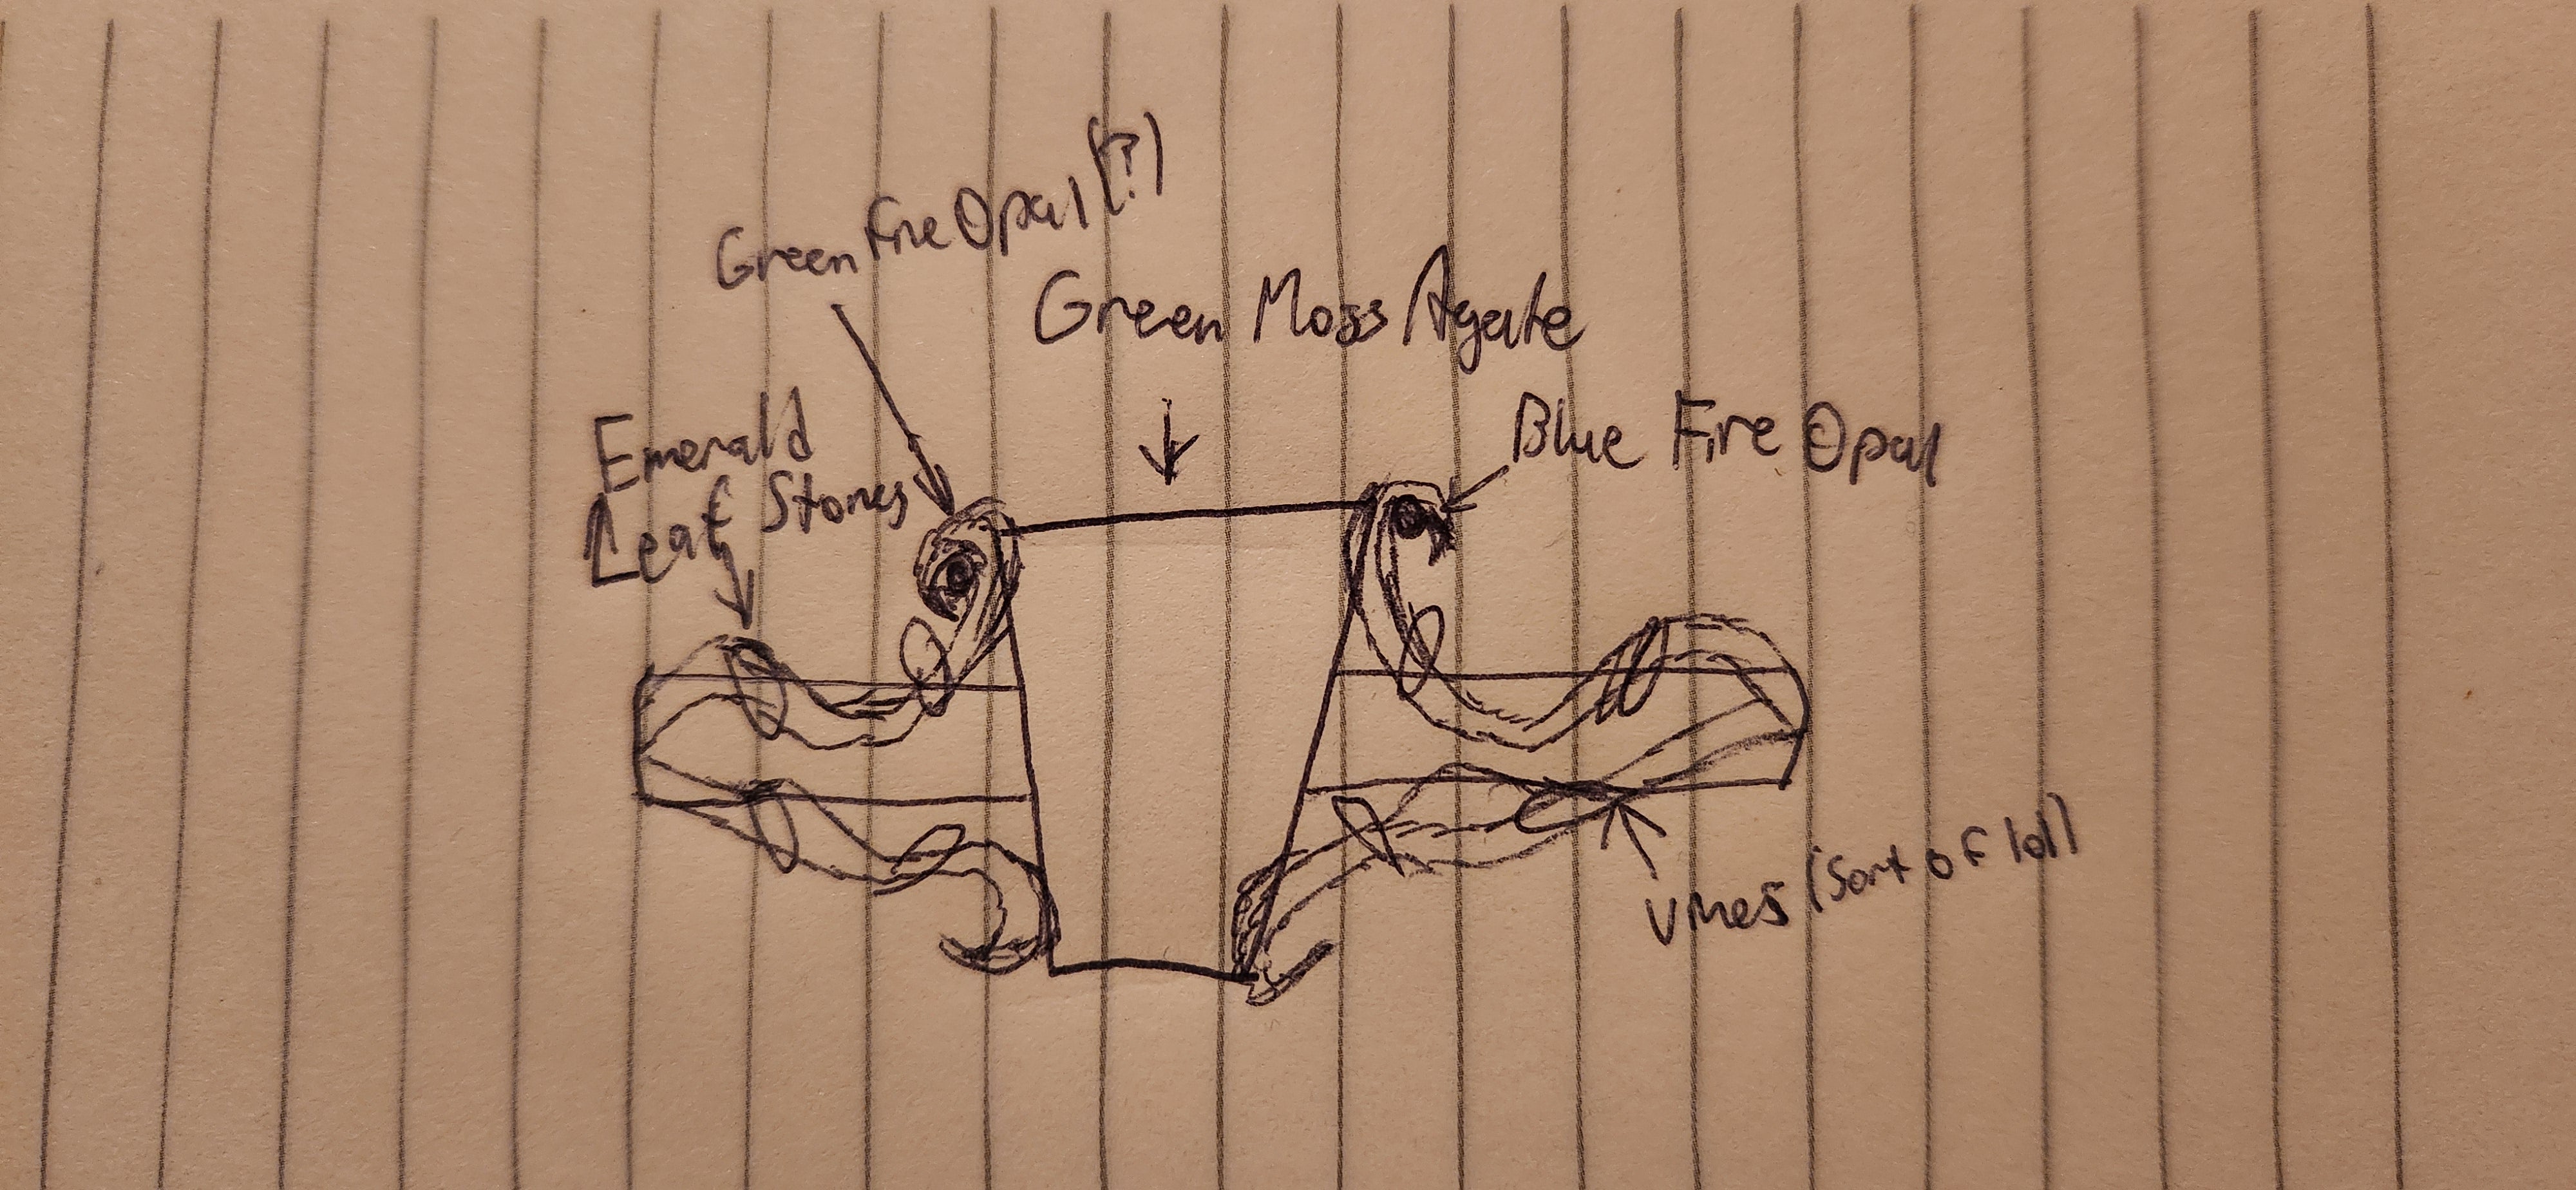 Green Fire Opal (?)
Green Moss Agate
Blue Fire Opal
Emerald
Leaf Stones
Vines (sort of lol)